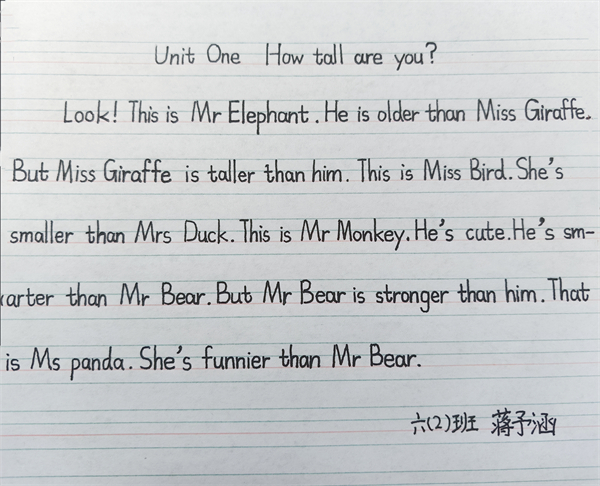 Unit One How tall are you?
Look! This is Mr Elephant. He is older than Miss Giraffe.
But Miss Giraffe is taller than him. This is Miss Bird. She's
smaller than Mrs Duck. This is Mr Monkey. He's cute. He's sm-
arter than Mr Bear. But Mr Bear is stronger than him. That
is Ms panda. She's funnier than Mr Bear.
六(2)班 蒋予涵